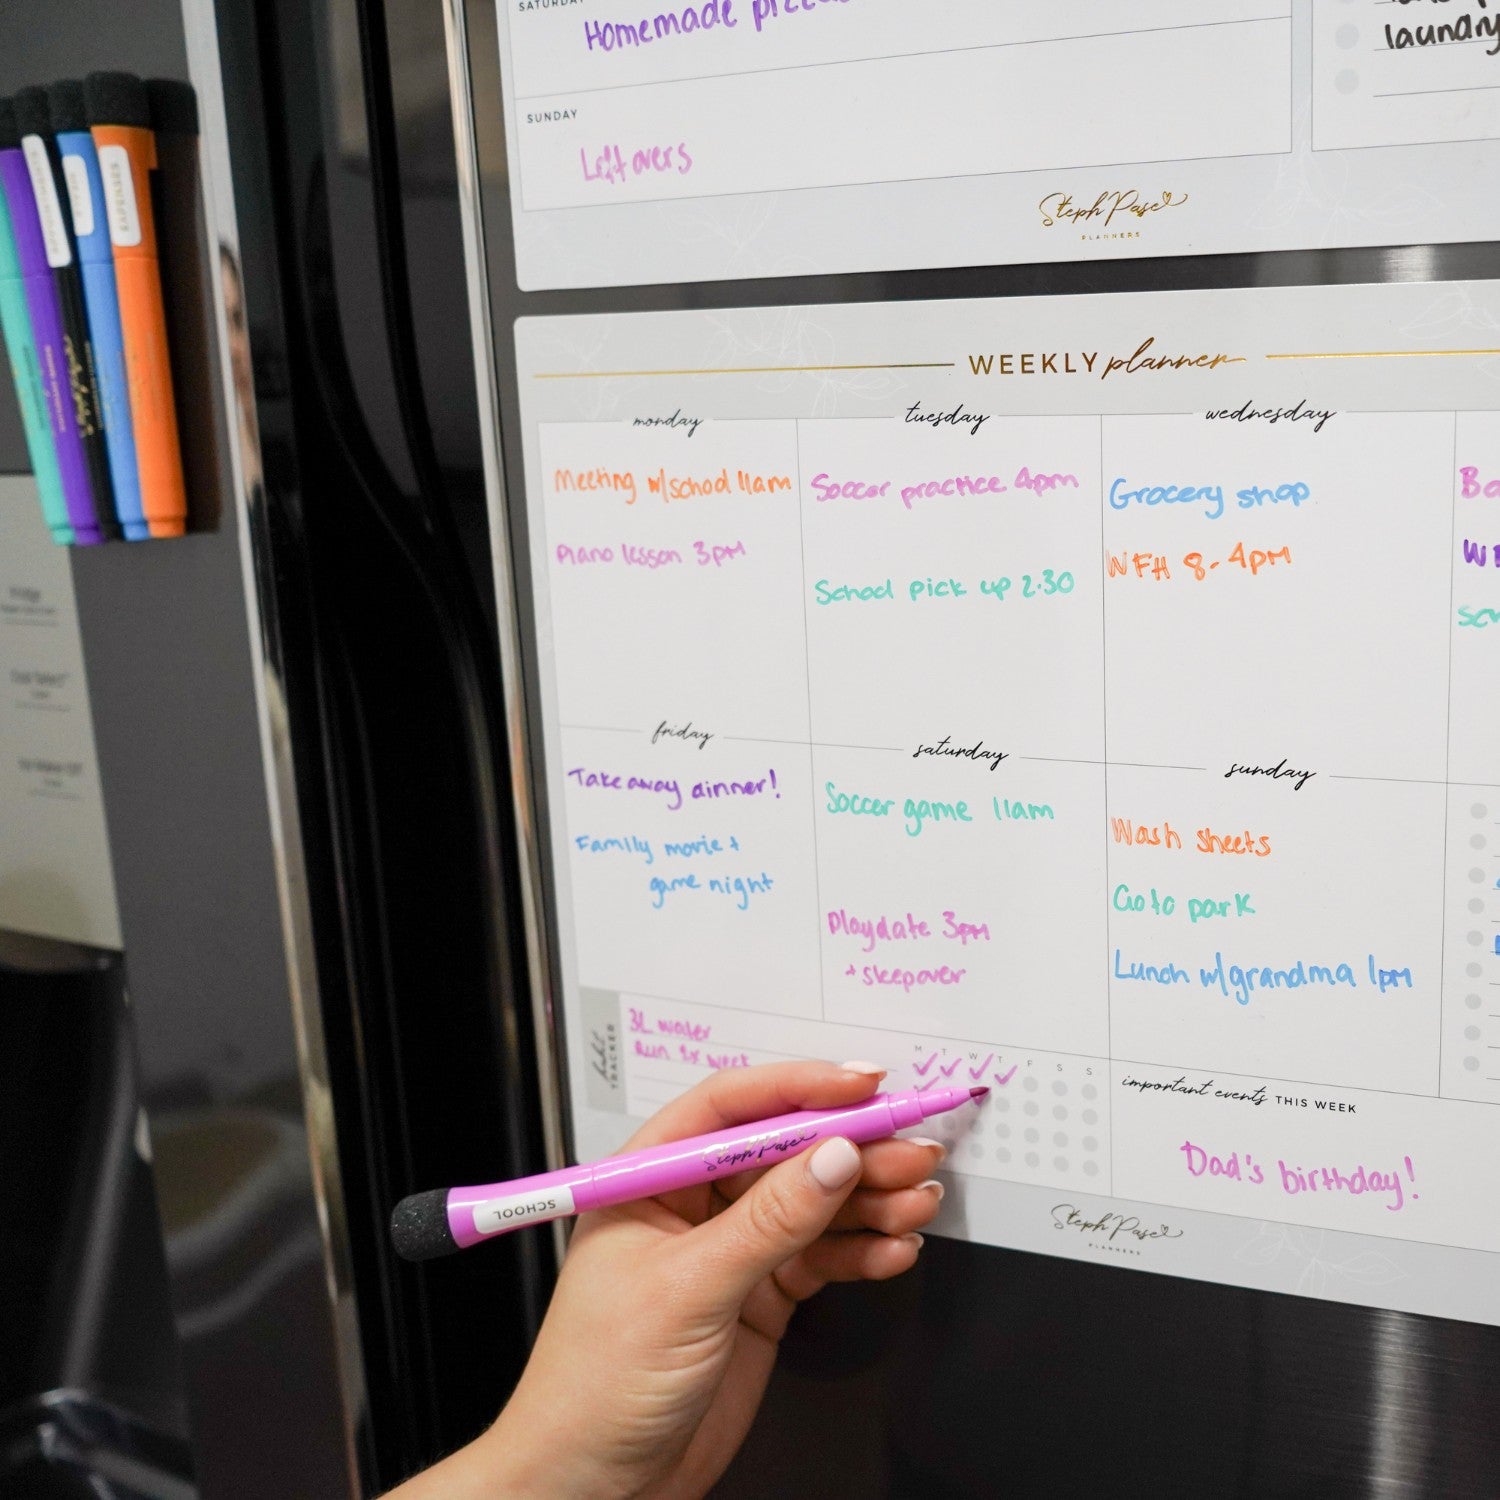 SATURDAY
Homemade pizzas
SUNDAY
Leftovers
laundry
Steph Pase
PLANNERS
WEEKLY planner
monday
Meeting w/school 11am
Piano lesson 3pm
tuesday
Soccer practice 4pm
School pick up 2.30
wednesday
Grocery shop
WFH 8-4pm
friday
Takeaway dinner!
Family movie +
game night
saturday
Soccer game 11am
Playdate 3pm
+ sleepover
sunday
Wash sheets
Go to park
Lunch w/grandma 1pm
habit
TRACKER
3L water
Run 2x week
M T W T F S S
important events THIS WEEK
Dad's birthday!
Steph Pase
PLANNERS
Steph Pase
SCHOOL
EXPENSES